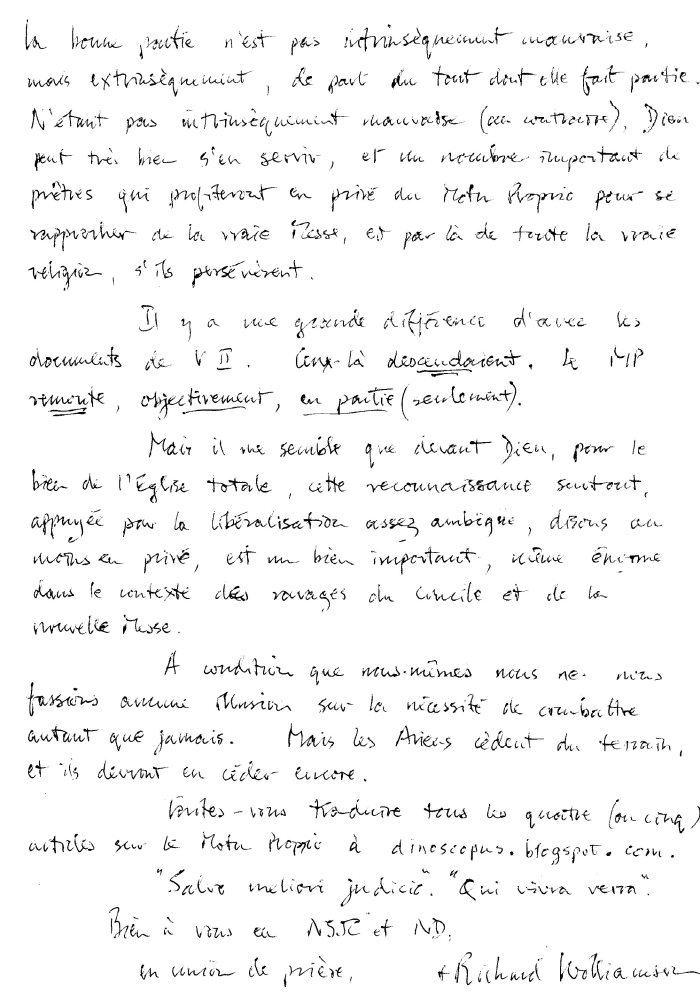 la bonne partie n'est pas intrinsèquement mauvaise,
mais extrinsèquement, de part du tout dont elle fait partie.
N'étant pas intrinsèquement mauvaise (au contraire), Dieu
peut très bien s'en servir, et un nombre important de
prêtres qui profiteront en privé du Motu Proprio pour se
rapprocher de la vraie Messe, et par là de toute la vraie
religion, s'ils persévèrent.
Il y a une grande différence d'avec les
documents de V II. Ceux-là descendaient. Le MP
remonte, objectivement, en partie (seulement).
Mais il me semble que devant Dieu, pour le
bien de l'Église totale, cette reconnaissance surtout,
appuyée par la libéralisation assez ambigüe, disons au
moins en privé, est un bien important, même énorme
dans le contexte des ravages du Concile et de la
nouvelle Messe.
A condition que nous-mêmes nous ne nous
fassions aucune illusion sur la nécessité de combattre
autant que jamais. Mais les Ariens cèdent du terrain,
et ils devront en céder encore.
Faites-vous traduire tous les quatre (ou cinq)
articles sur le Motu Proprio à dinoscopus.blogspot.com.
"Salvo meliori judicio". "Qui vivra verra".
Bien à vous en NSJC et ND,
en union de prière, +Richard Williamson